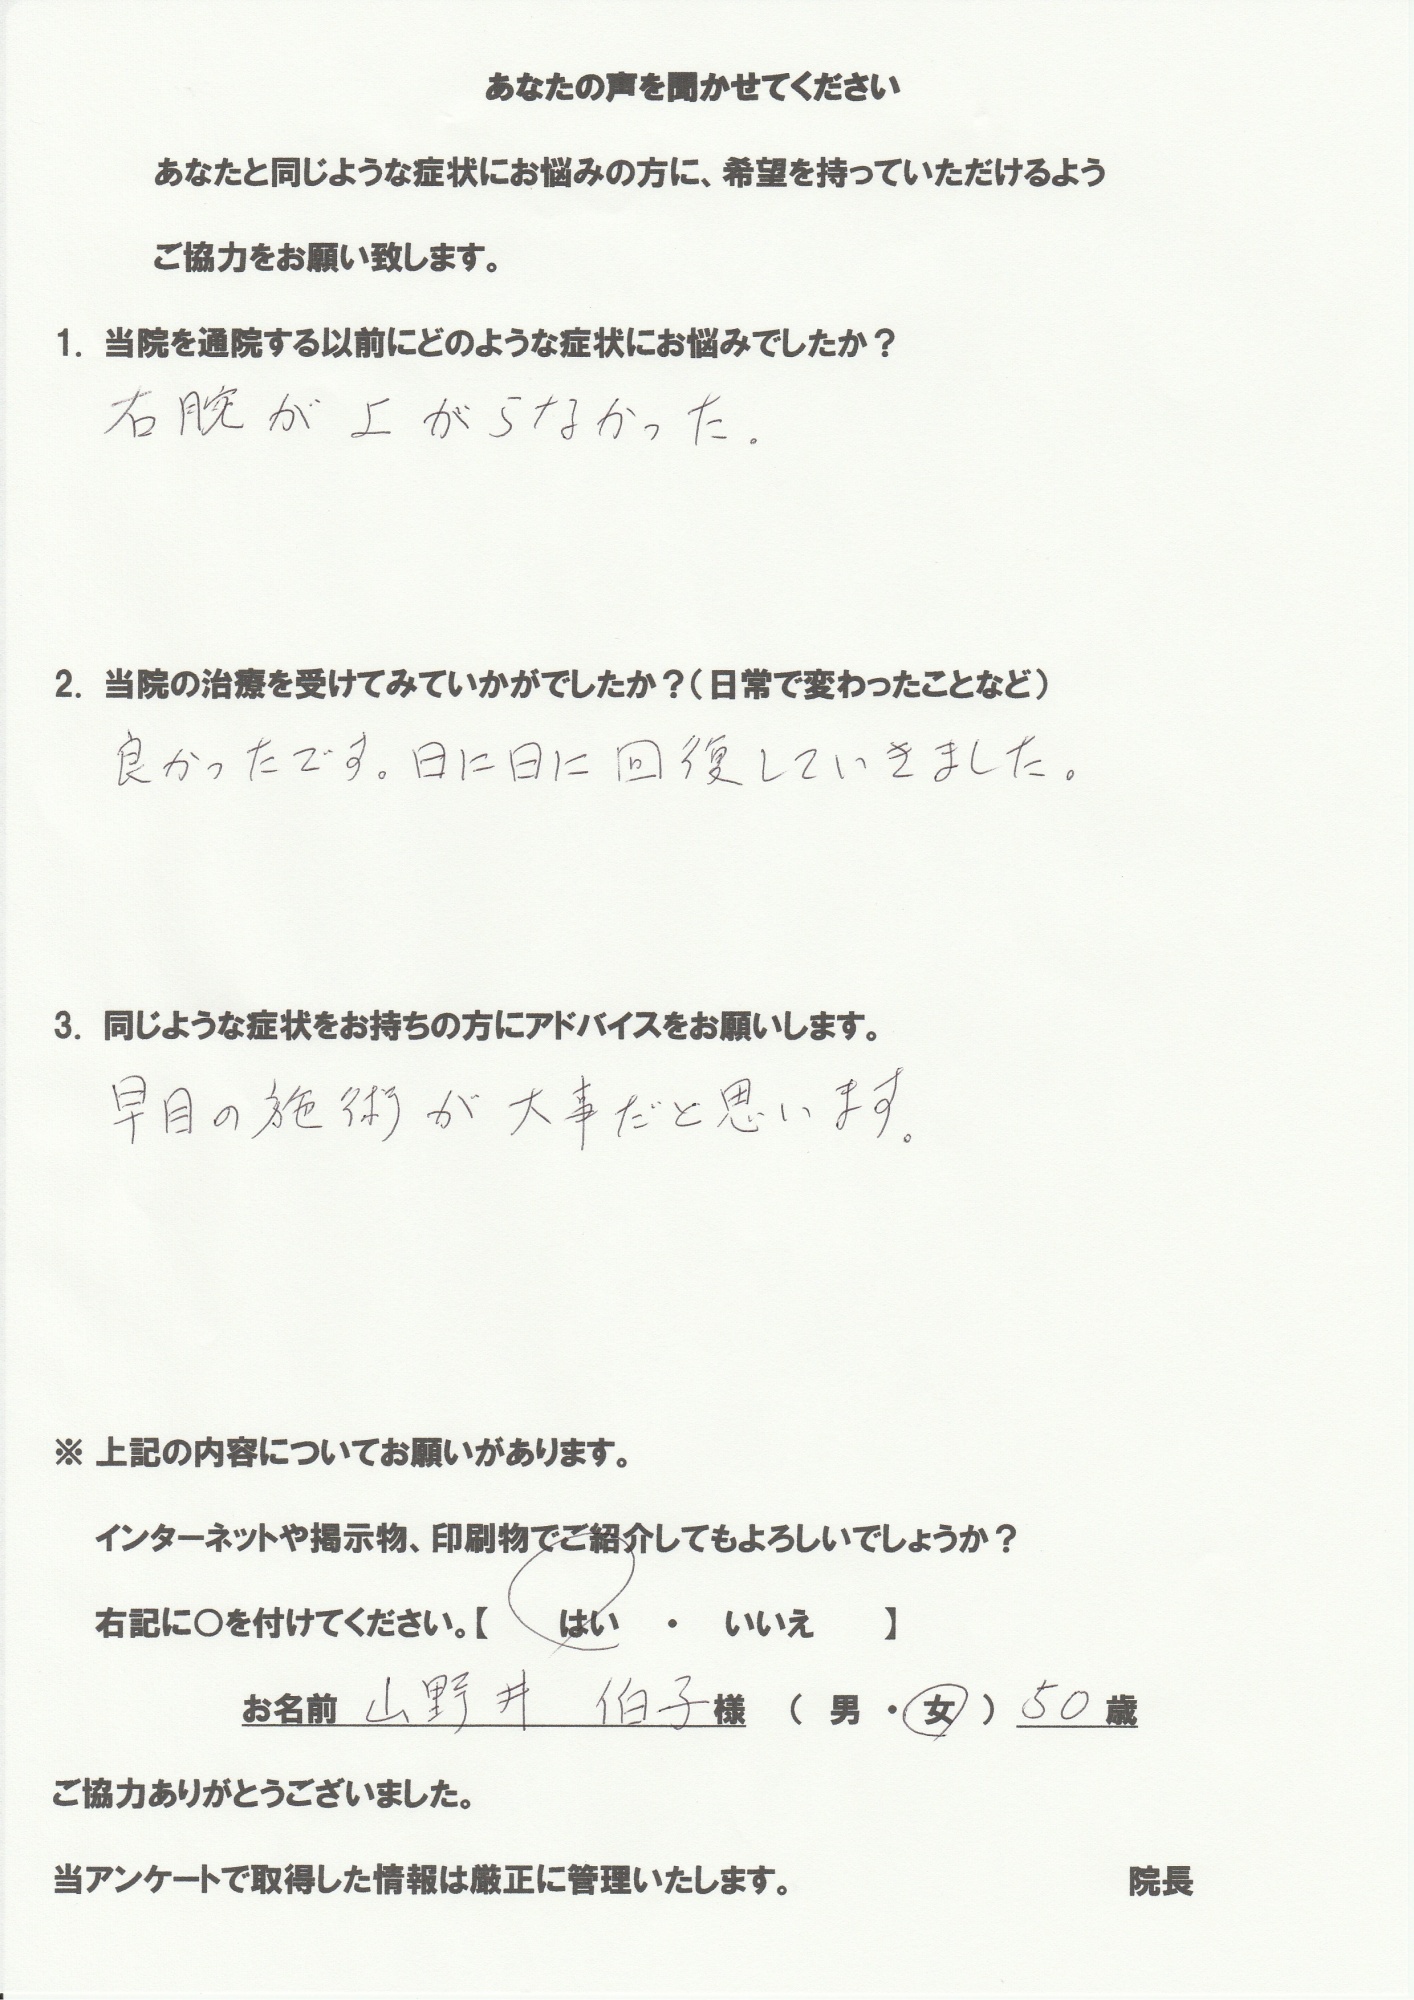 あなたの声を聞かせてください
あなたと同じような症状にお悩みの方に、希望を持っていただけるよう
ご協力をお願い致します。
1. 当院を通院する以前にどのような症状にお悩みでしたか？
右腕が上がらなかった。
2. 当院の治療を受けてみていかがでしたか？（日常で変わったことなど）
良かったです。日に日に回復していきました。
3. 同じような症状をお持ちの方にアドバイスをお願いします。
早目の施術が大事だと思います。
※ 上記の内容についてお願いがあります。
インターネットや掲示物、印刷物でご紹介してもよろしいでしょうか？
右記に○を付けてください。【 はい ・ いいえ 】
お名前 山野井 伯子様 （ 男 ・ 女 ） 50 歳
ご協力ありがとうございました。
当アンケートで取得した情報は厳正に管理いたします。 院長